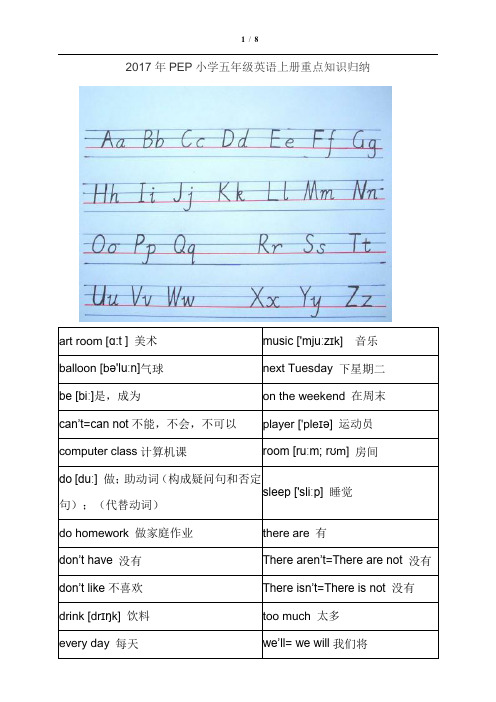 1 / 8
2017年PEP小学五年级英语上册重点知识归纳
Aa Bb Cc Dd Ee Ff Gg
Hh Ii Jj Kk Ll Mm Nn
Oo Pp Qq Rr Ss Tt
Uu Vv Ww Xx Yy Zz
art room [ɑ:t ] 美术 music ['mjuːzɪk] 音乐
balloon [bə'luːn]气球 next Tuesday 下星期二
be [biː]是，成为 on the weekend 在周末
can't=can not不能，不会，不可以 player ['pleɪə] 运动员
computer class计算机课 room [ruːm; rʊm] 房间
do [duː] 做；助动词（构成疑问句和否定
句）；（代替动词） sleep ['sliːp] 睡觉
do homework 做家庭作业 there are 有
don't have 没有 There aren't=There are not 没有
don't like不喜欢 There isn't=There is not 没有
drink [drɪŋk] 饮料 too much 太多
every day 每天 we'll= we will我们将